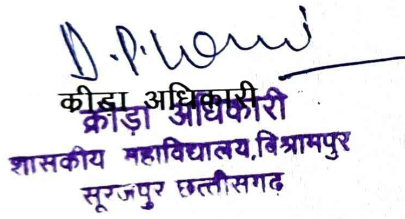 कीडा अधिकारी
क्रीड़ा अधिकारी
शासकीय महाविद्यालय,बिश्रामपुर
सूरजपुर छत्तीसगढ़